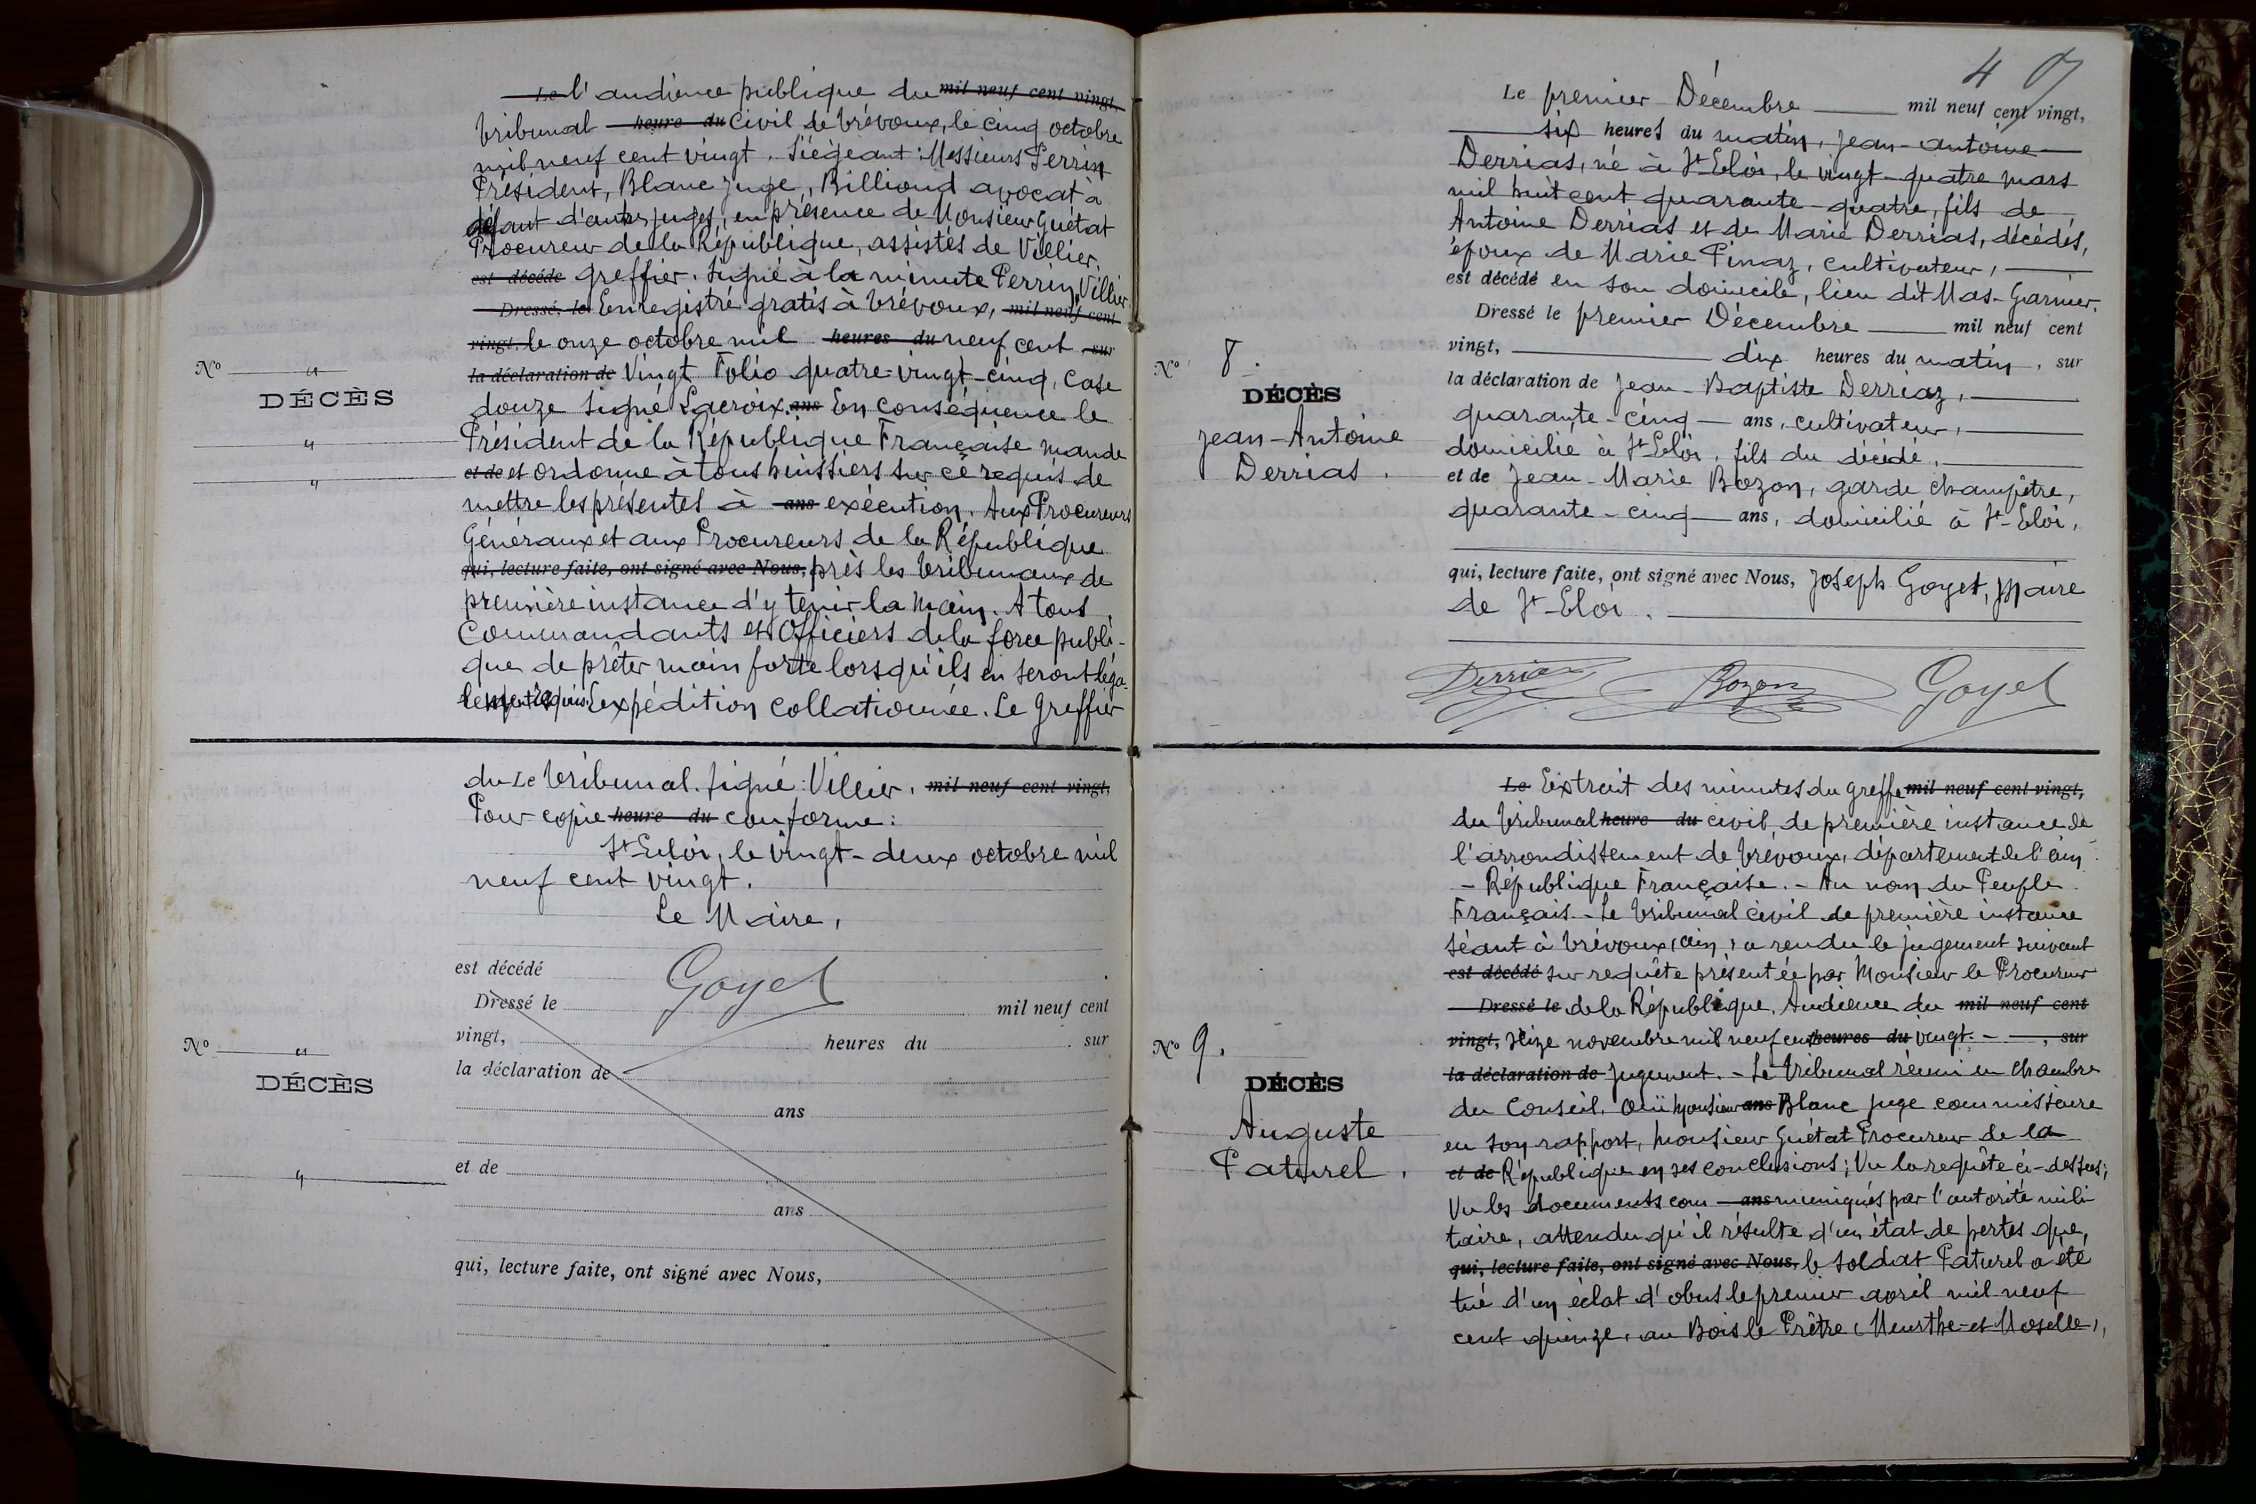 Le l'audience publique du mil neuf cent vingt,
tribunal heure du Civil de trévoux, le cinq octobre
mil neuf cent vingt. Siégeant : Messieurs Perrin
Président, Blanc juge, Billioud avocat à
défaut d'autres juges, en présence de Monsieur Guétat
Procureur de la République, assistés de Villier,
est décédé greffier. Signé à la minute Perrin, Villier.
Dressé, le Enregistré gratis à trévoux, mil neuf cent
vingt, le onze octobre mil heures du neuf cent sur
la déclaration de Vingt Folio quatre-vingt-cinq, case
douze signé Lacroix. ans En conséquence le
Président de la République Française mande
et de et ordonne à tous huissiers sur ce requis de
mettre les présentes à ans exécution. Aux Procureurs
Généraux et aux Procureurs de la République
qui, lecture faite, ont signé avec Nous, près les tribunaux de
première instance d'y tenir la main. A tous
Commandants et Officiers de la force publi-
que de prêter main forte lorsqu'ils en seront léga-
lement requis. L'expédition collationnée. Le Greffier
No "
DÉCÈS
"
"
du Le tribunal. signé : Villier. mil neuf cent vingt,
Pour copie heure du conforme :
St-Eloi, le vingt-deux octobre mil
neuf cent vingt.
Le Maire,
est décédé
Goyet
Dressé le mil neuf cent
vingt, heures du sur
la déclaration de
ans
et de
ans
qui, lecture faite, ont signé avec Nous,
No "
DÉCÈS
"
4
Le premier Décembre mil neuf cent vingt,
six heures du matin, Jean-Antoine
Derrias, né à St-Eloi, le vingt-quatre mars
mil huit cent quarante-quatre, fils de
Antoine Derrias et de Marie Derrias, décédés,
époux de Marie Pinaz, cultivateur,
est décédé en son domicile, lieu dit Mas-Garnier.
Dressé le premier Décembre mil neuf cent
vingt, dix heures du matin, sur
la déclaration de Jean-Baptiste Derriaz,
quarante-cinq ans, cultivateur,
domicilié à St-Eloi, fils du décédé,
et de Jean-Marie Bozon, garde champêtre,
quarante-cinq ans, domicilié à St-Eloi,
qui, lecture faite, ont signé avec Nous, Joseph Goyet, Maire
de St-Eloi.
Derrias Bozon Goyet
No 8.
DÉCÈS
Jean-Antoine
Derrias.
Le Extrait des minutes du greffe mil neuf cent vingt,
du tribunal heure du civil, de première instance de
l'arrondissement de trévoux, département de l'ain
- République Française. - Au nom du Peuple
Français - Le tribunal civil de première instance
séant à trévoux, (ain), a rendu le jugement suivant
est décédé sur requête présentée par Monsieur le Procureur
Dressé le de la République. Audience du mil neuf cent
vingt, seize novembre mil neuf cent heures du vingt. - , sur
la déclaration de Jugement. - Le tribunal réuni en chambre
du Conseil. Ouï Monsieur ans Blanc juge commissaire
en son rapport, Monsieur Guétat Procureur de la
et de République en ses conclusions ; Vu la requête ci-dessus ;
Vu les documents com ans muniqués par l'autorité mili
taire, attendu qu'il résulte d'un état de pertes que,
qui, lecture faite, ont signé avec Nous, le soldat Paturel a été
tué d'un éclat d'obus le premier avril mil neuf
cent quinze, au Bois le Prêtre (Meurthe-et-Moselle),
No 9.
DÉCÈS
Auguste
Paturel.